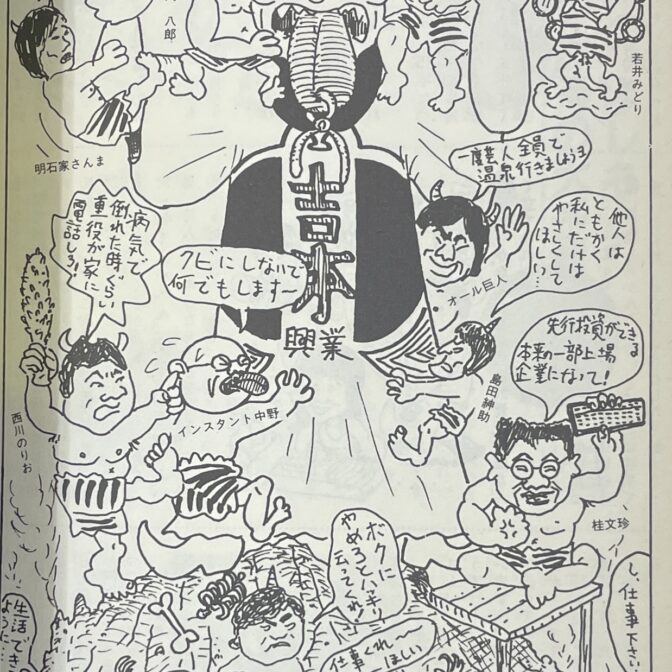 八郎
若井みどり
明石家さんま
一度芸人全員で
温泉行きましょう
病気で
倒れた時ぐらい
重役が家に
電話しろ!
クビにしないで
何でもします〜
吉本
興業
他人は
ともかく
私にだけは
やさしくして
ほしい…
オール巨人
島田紳助
先行投資ができる
本来の一部上場
企業になって!
西川のりお
インスタント中野
桂文珍
ボクに
やめろとハッキリ
云ってくれ!
仕事くれ〜
ほしい
し、仕事下さい
生活でき
ように…